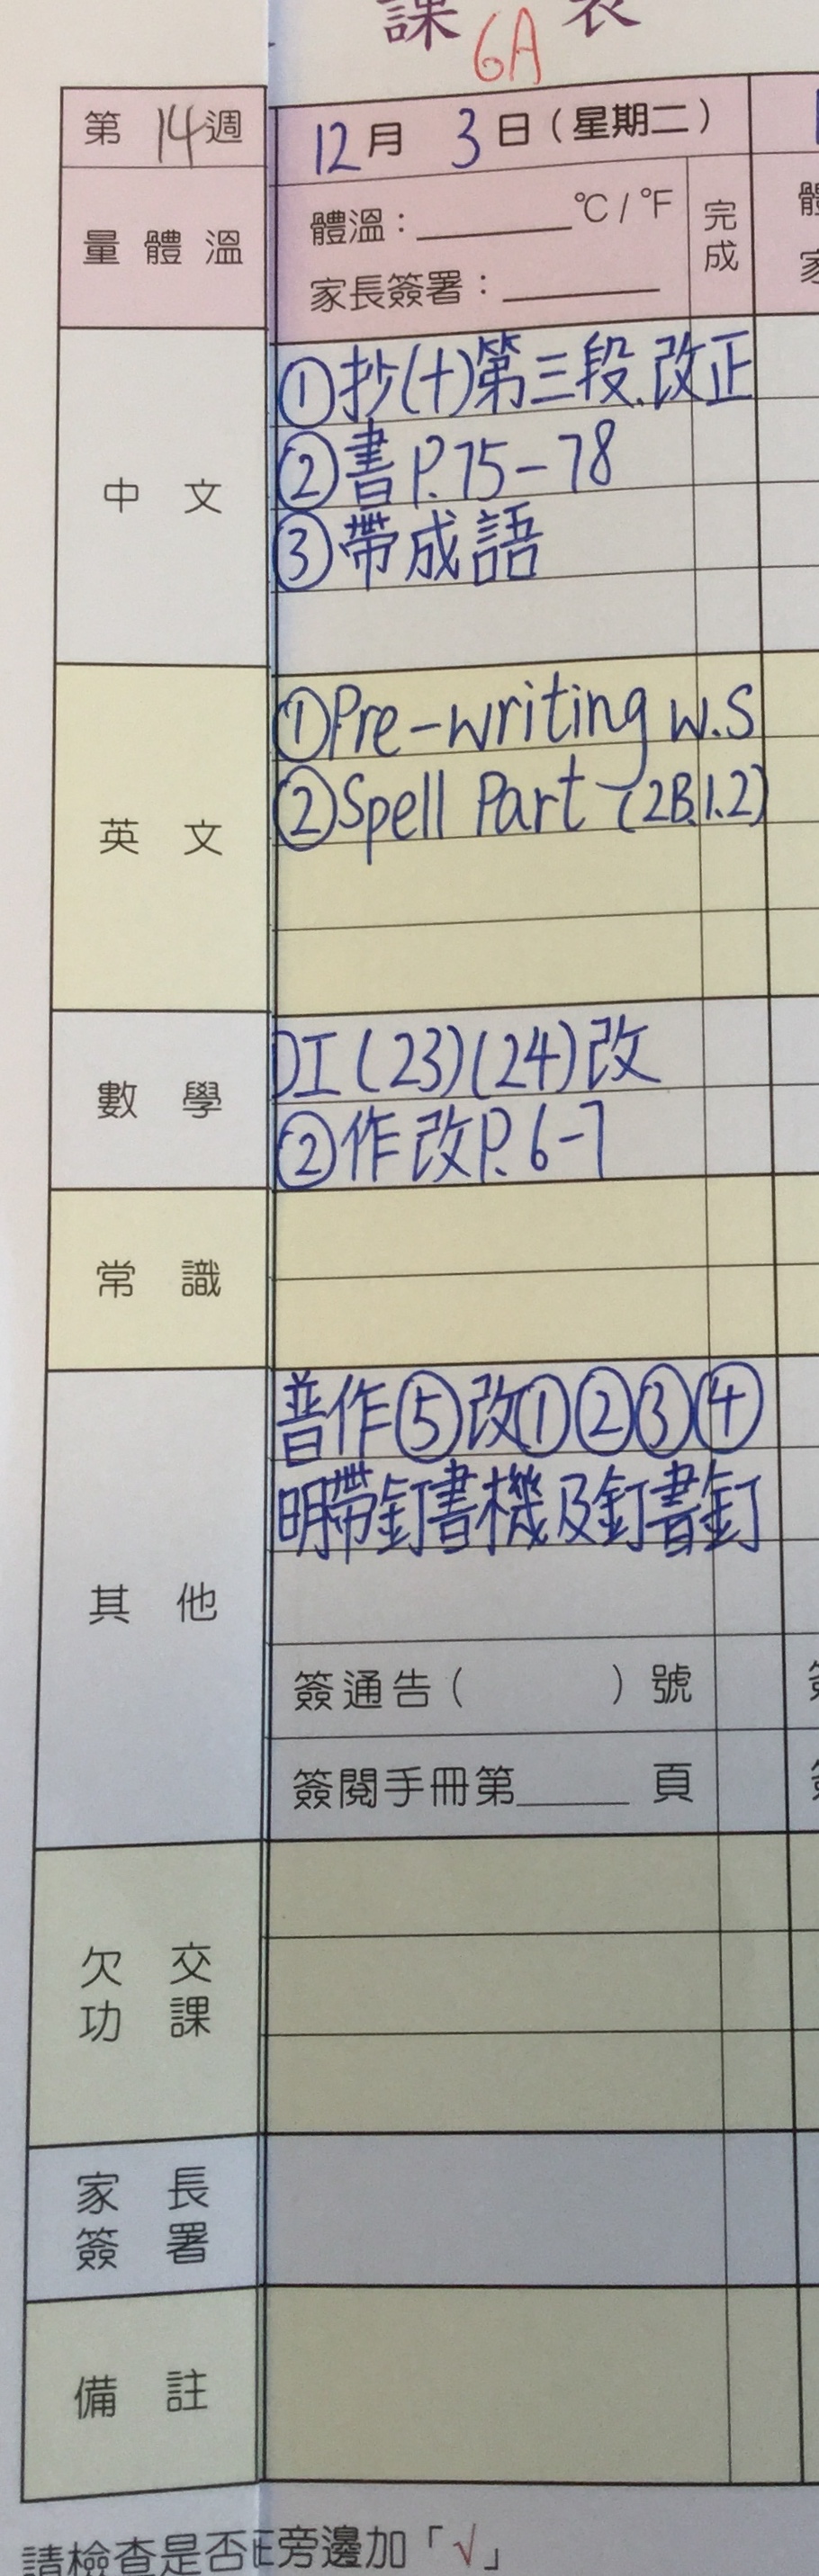 課 表
6A
第 14 週
12月 3日(星期二)
量體溫
體溫:______℃/℉
家長簽署:______
完成
中文
①抄(十)第三段、改正
②書P.75-78
③帶成語
英文
①Pre-writing W.S
②Spell Part (2B.1.2)
數學
工(23)(24)改
②作改P.6-7
常識
其他
普作⑤改①②③④
明帶釘書機及釘書釘
簽通告( )號
簽閱手冊第____頁
欠交
功課
家長
簽署
備註
請檢查是否
旁邊加「√」